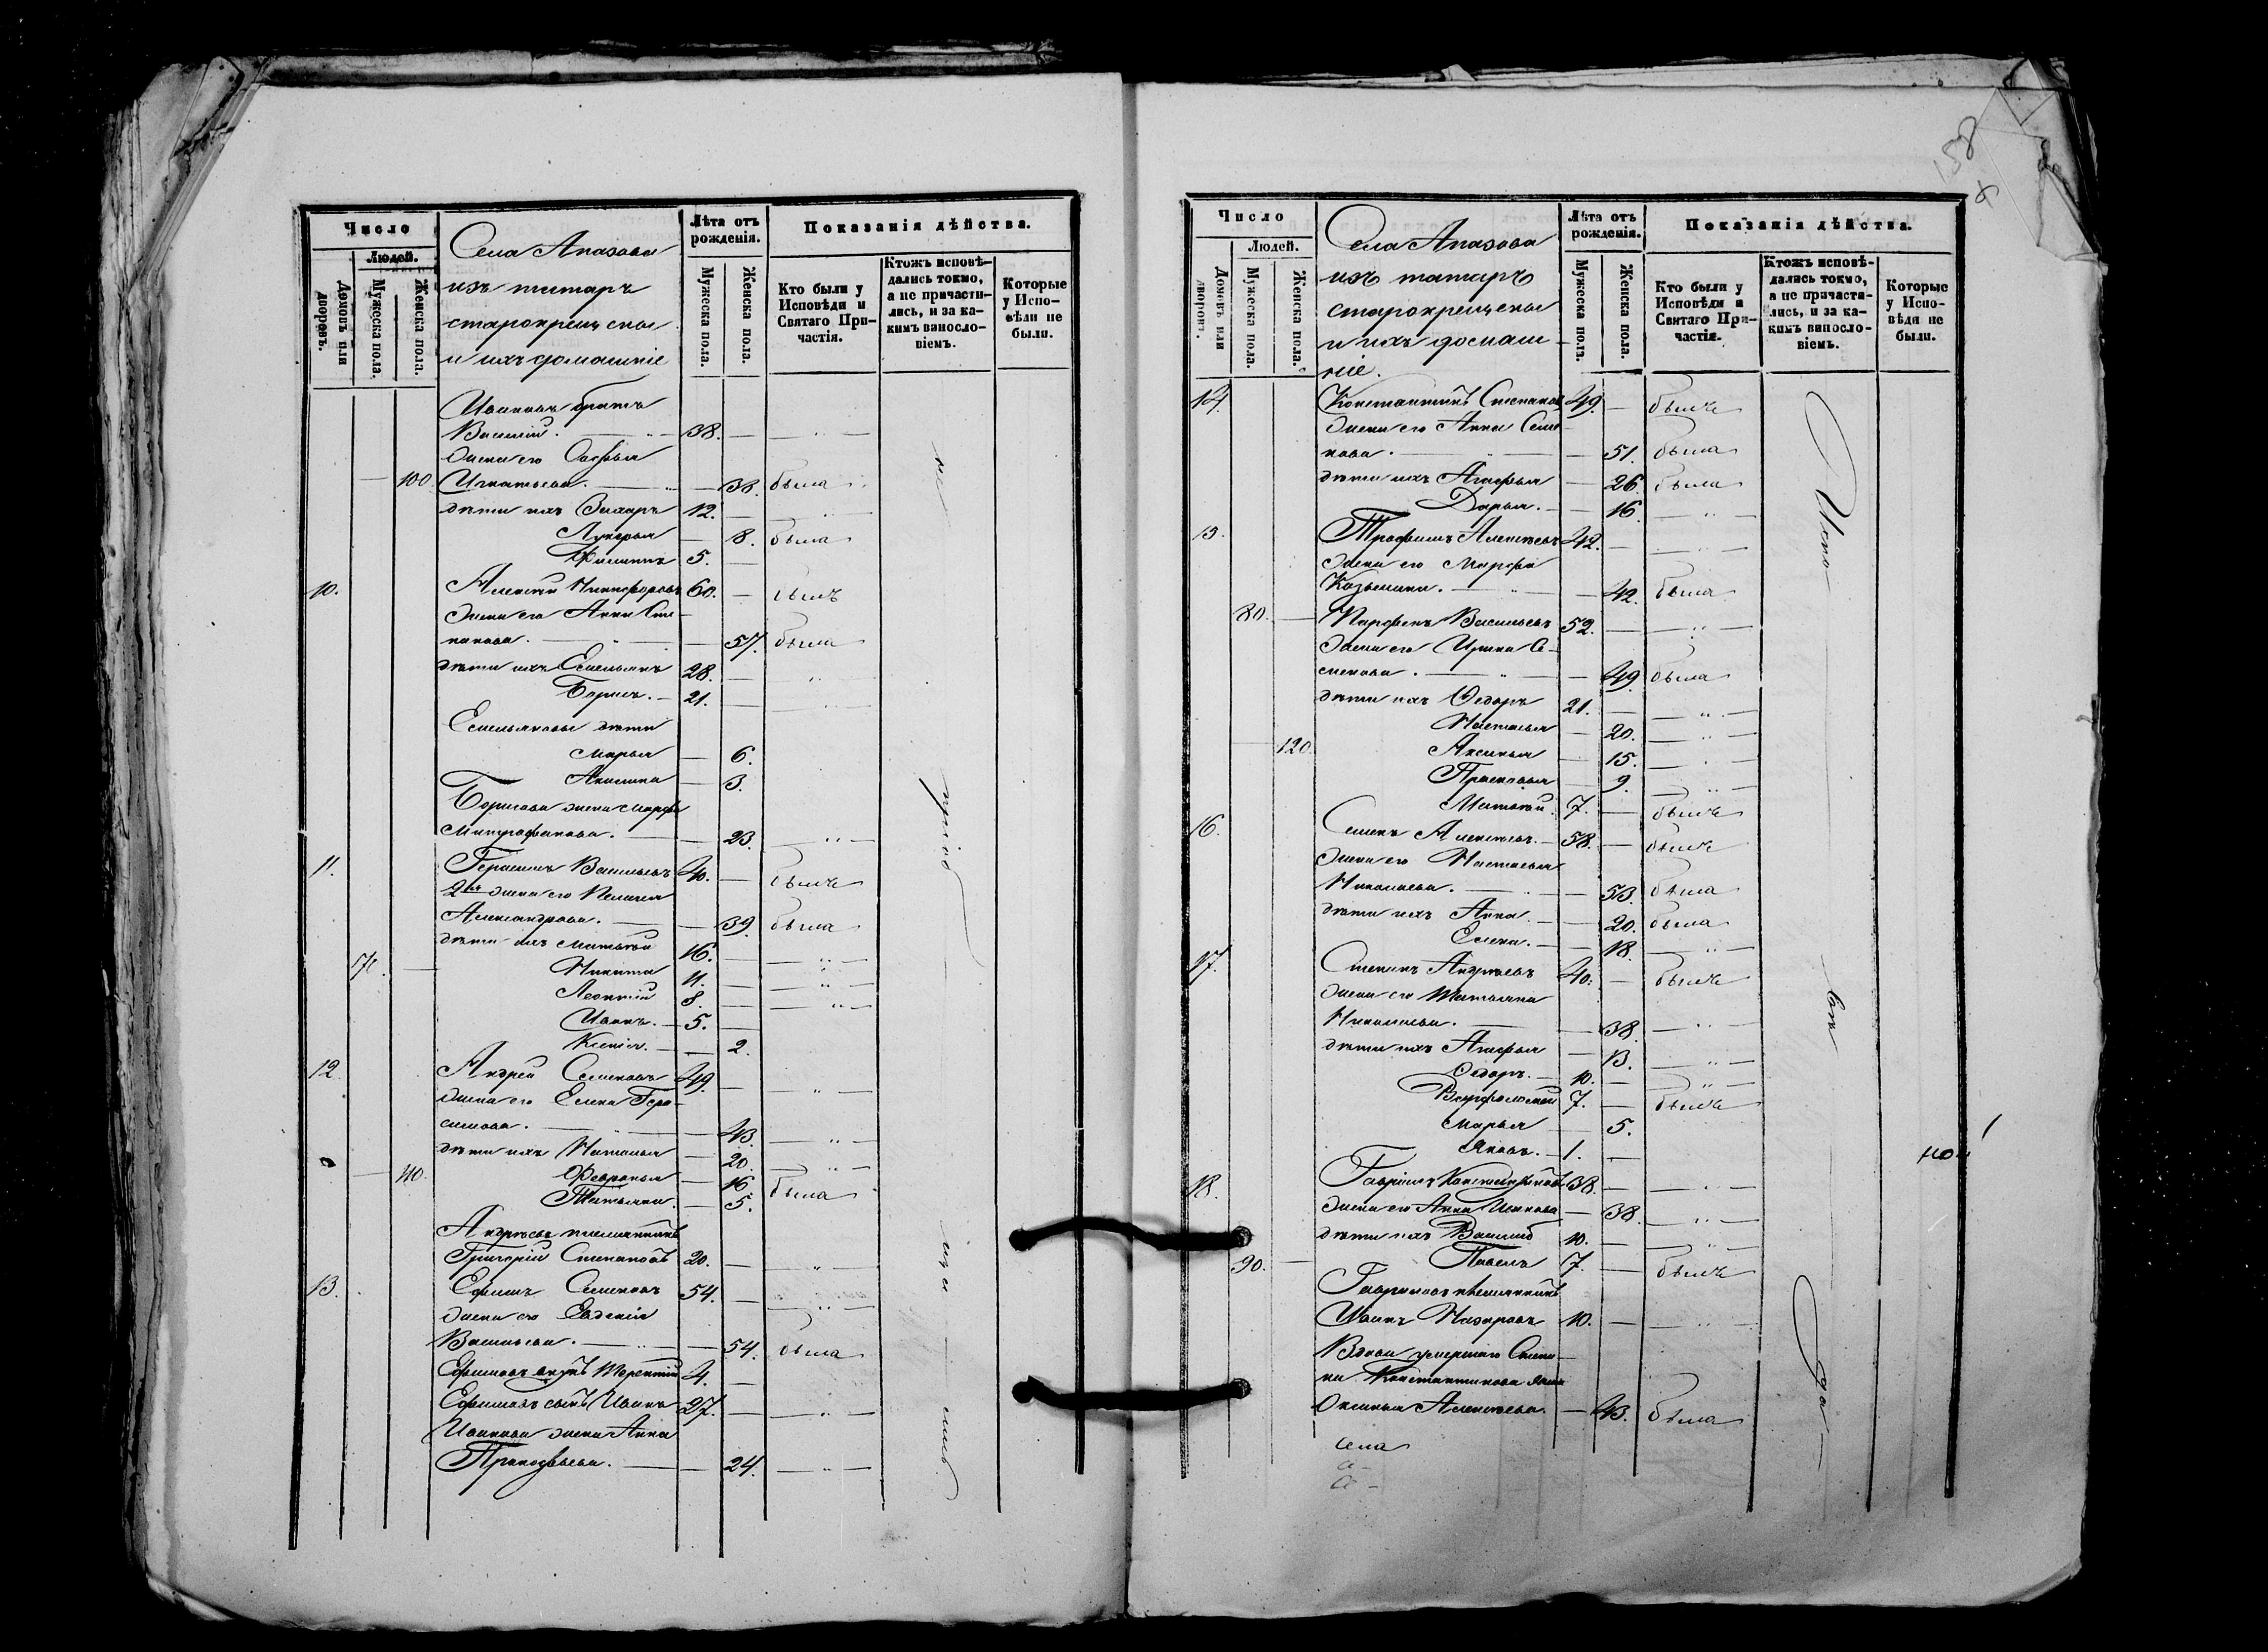 Число
Людей.
Домовъ или дворовъ.
Мужеска пола.
Женска пола.
Села Апазова
изъ татаръ
старокрещены
и ихъ домашніе
Лѣта отъ рожденія.
Мужеска пола.
Женска пола.
Показанія дѣйства.
Кто были у Исповѣди и Святаго Причастія.
Ктожъ исповѣ-
дались токмо,
а не причасти-
лись, и за ка-
кимъ винносло-
віемъ.
Которые
у Испо-
вѣди не
были.
Ивановъ братъ
Василій. 38. — „ —
жена его
100. Игнатьева. — была
дѣти ихъ Захаръ 12. — „ —
Лукерья — 8. была
Филиппъ 5. —
10. Алексѣй Никифоровъ 60. — былъ
жена его Анна Сте-
панова. — 57. была
дѣти ихъ Емельянъ 28. — „ —
Борисъ. 21. — „ —
Емельяновы дѣти
Марья — 6.
Акилина — 3.
Борисова жена Марфа
Митрофанова. — 23. — „ —
11. Герасимъ Васильевъ 40. — былъ
2я жена его Пелагея
Александрова. — 39. была
дѣти ихъ Матвѣй 16. — „ —
Никита 11. — „ —
Леонтій 8. — „ —
Иванъ. 5. —
Ксенія. — 2.
12. Андрей Семеновъ 49. — „ —
жена его Елена Гера-
симова. — 43. — „ —
дѣти ихъ Наталья — 20. — „ —
110. Февронья — 16. была
Татьяна. — 5.
Андреевъ племянникъ
Григорій Степановъ 20. — „ —
13. Ефимъ Семеновъ 54. — „ —
жена его Евдокія
Васильева. — 54. была
Ефимовъ внукъ Терентій 4. —
Ефимовъ сынъ Иванъ 27. — „ —
Иванова жена Анна
Прокофьева. — 24. — „ —
158
Число
Людей.
Домовъ или дворовъ.
Мужеска пола.
Женска пола.
Села Апазова
изъ татаръ
старокрещены
и ихъ домаш-
ніе.
Лѣта отъ рожденія.
Мужеска пола.
Женска пола.
Показанія дѣйства.
Кто были у
Исповѣди и
Святаго При-
частія.
Ктожъ исповѣ-
дались токмо,
а не причасти-
лись, и за ка-
кимъ винносло-
віемъ.
Которые
у Испо-
вѣди не
были.
14. Константинъ Степановъ 49. — былъ
жена его Анна Семе-
нова. — 51. была
дѣти ихъ Агафья — 26. была
Дарья. — 16. — „ —
15. Трофимъ Алексѣевъ 42. — „ —
жена его Марфа
Козьмина. — 42. была
80. Парфенъ Васильевъ 52. — „ —
жена его Ирина Се-
менова. — 49. была
дѣти ихъ Ѳедоръ 21. — „ —
Настасья — 20. — „ —
120. Аксинья — 15. — „ —
Прасковья — 9. — „ —
Матвѣй. 7. — былъ
16. Семенъ Алексѣевъ. 58. — былъ
жена его Настасья
Николаева. — 53. была
дѣти ихъ Анна. — 20. была
Елена. — 18. — „ —
17. Степанъ Андреевъ 40. — былъ
жена его Татьяна
Николаева. — 38. — „ —
дѣти ихъ Агафья — 13. — „ —
Ѳедоръ. 10. — „ —
Варфоломей 7. — былъ
Марья — 5.
Яковъ. 1. —
18. Гавріилъ Константиновъ 38. — „ —
жена его Анна Иванова — 38. — „ —
дѣти ихъ Василій 10. — „ —
90. Павелъ 7. — былъ
Гавриловъ племянникъ
Иванъ Назаровъ 10. — „ —
Вдова умершаго Степа-
на Константинова жена
Оксинья Алексѣева. — 43. была